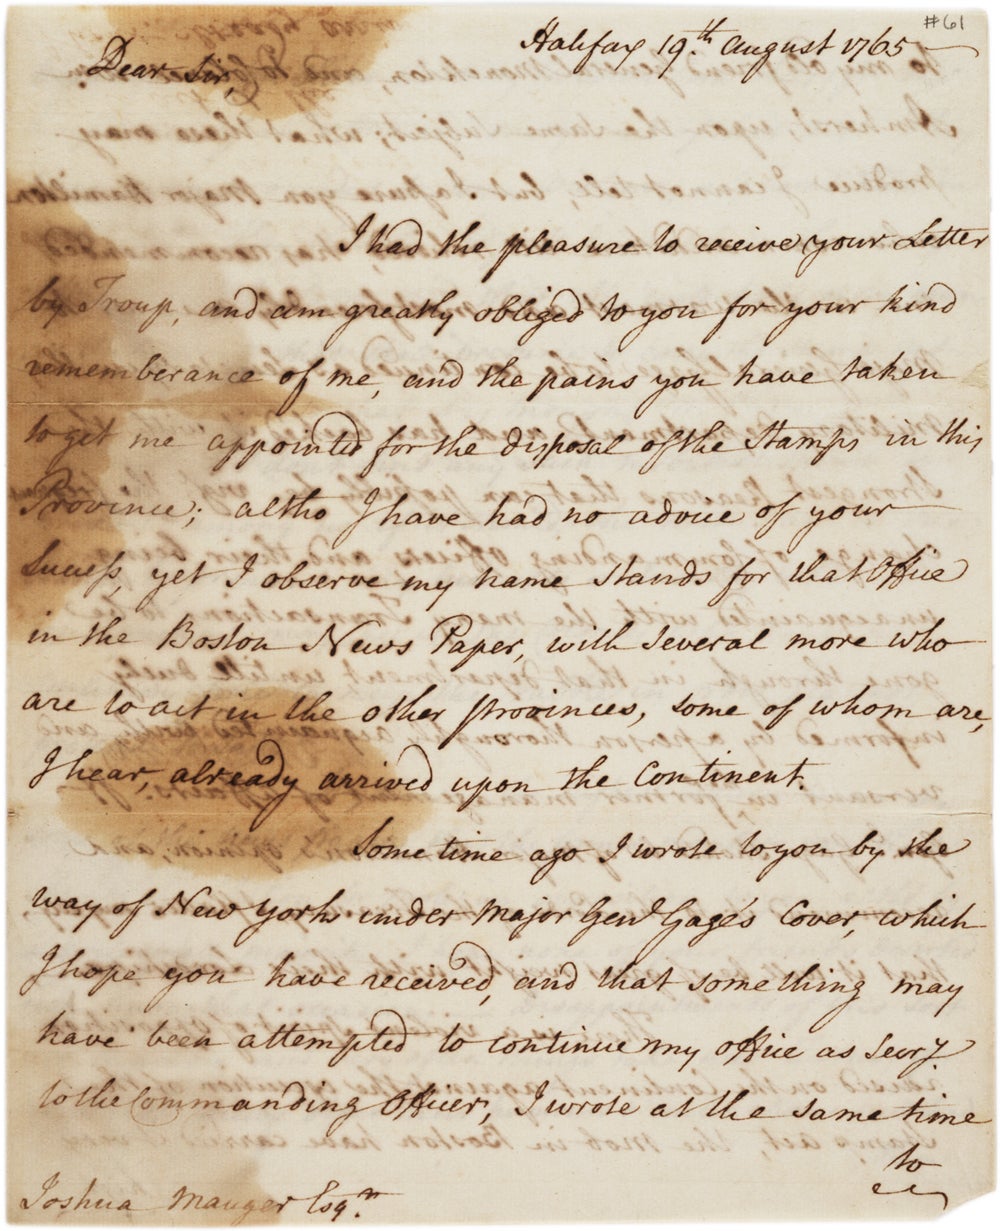 #61
Halifax 19.th August 1765
Dear Sir,
I had the pleasure to receive your Letter
by Troup, and am greatly obliged to you for your kind
rememberance of me, and the pains you have taken
to get me appointed for the disposal of the Stamps in this
Province; altho I have had no advice of your
Success, yet I observe my name stands for that Office
in the Boston News Paper, with several more who
are to act in the other provinces, some of whom are,
I hear, already arrived upon the Continent.
Some time ago I wrote to you by the
way of New York under Major Genl Gage's Cover, which
I hope you have received, and that something may
have been attempted to continue my office as Secry
to the Commanding Officer, I wrote at the same time
to
Joshua Mauger Esqr.